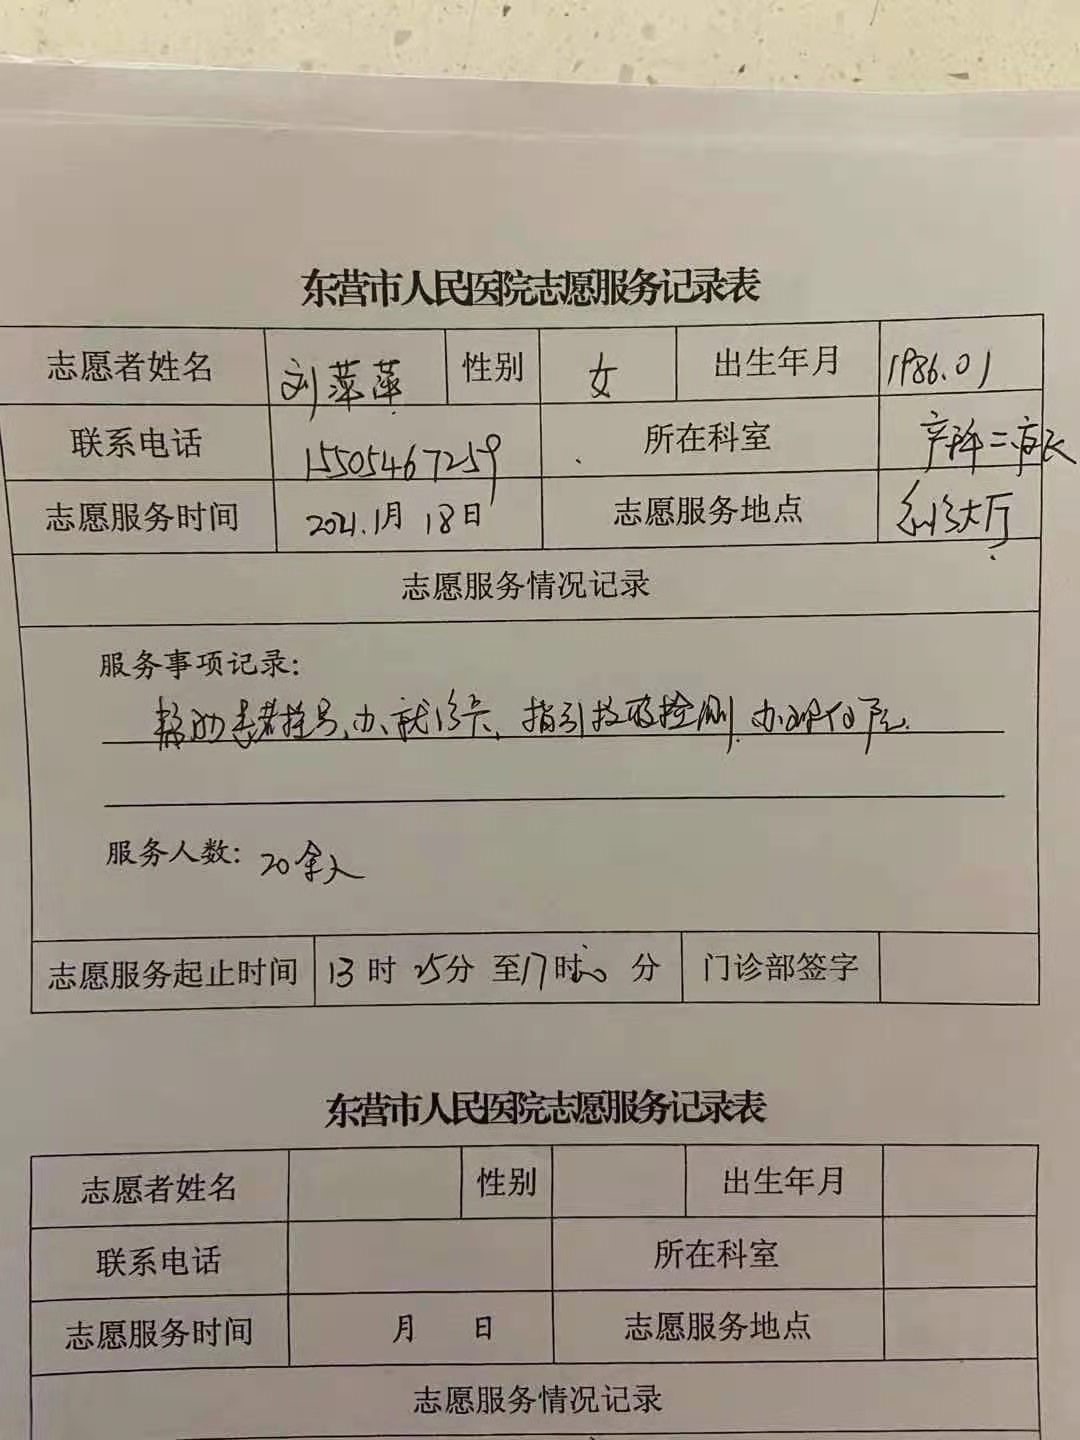 东营市人民医院志愿服务记录表
志愿者姓名 刘萍萍 性别 女 出生年月 1986.01
联系电话 15505467259 所在科室 产科二病区
志愿服务时间 2021.1月18日 志愿服务地点 大厅
志愿服务情况记录
服务事项记录:
帮助患者挂号、办就诊卡、指引
服务人数: 20余人
志愿服务起止时间 13时25分至17时00分 门诊部签字
东营市人民医院志愿服务记录表
志愿者姓名 性别 出生年月
联系电话 所在科室
志愿服务时间 月 日 志愿服务地点
志愿服务情况记录